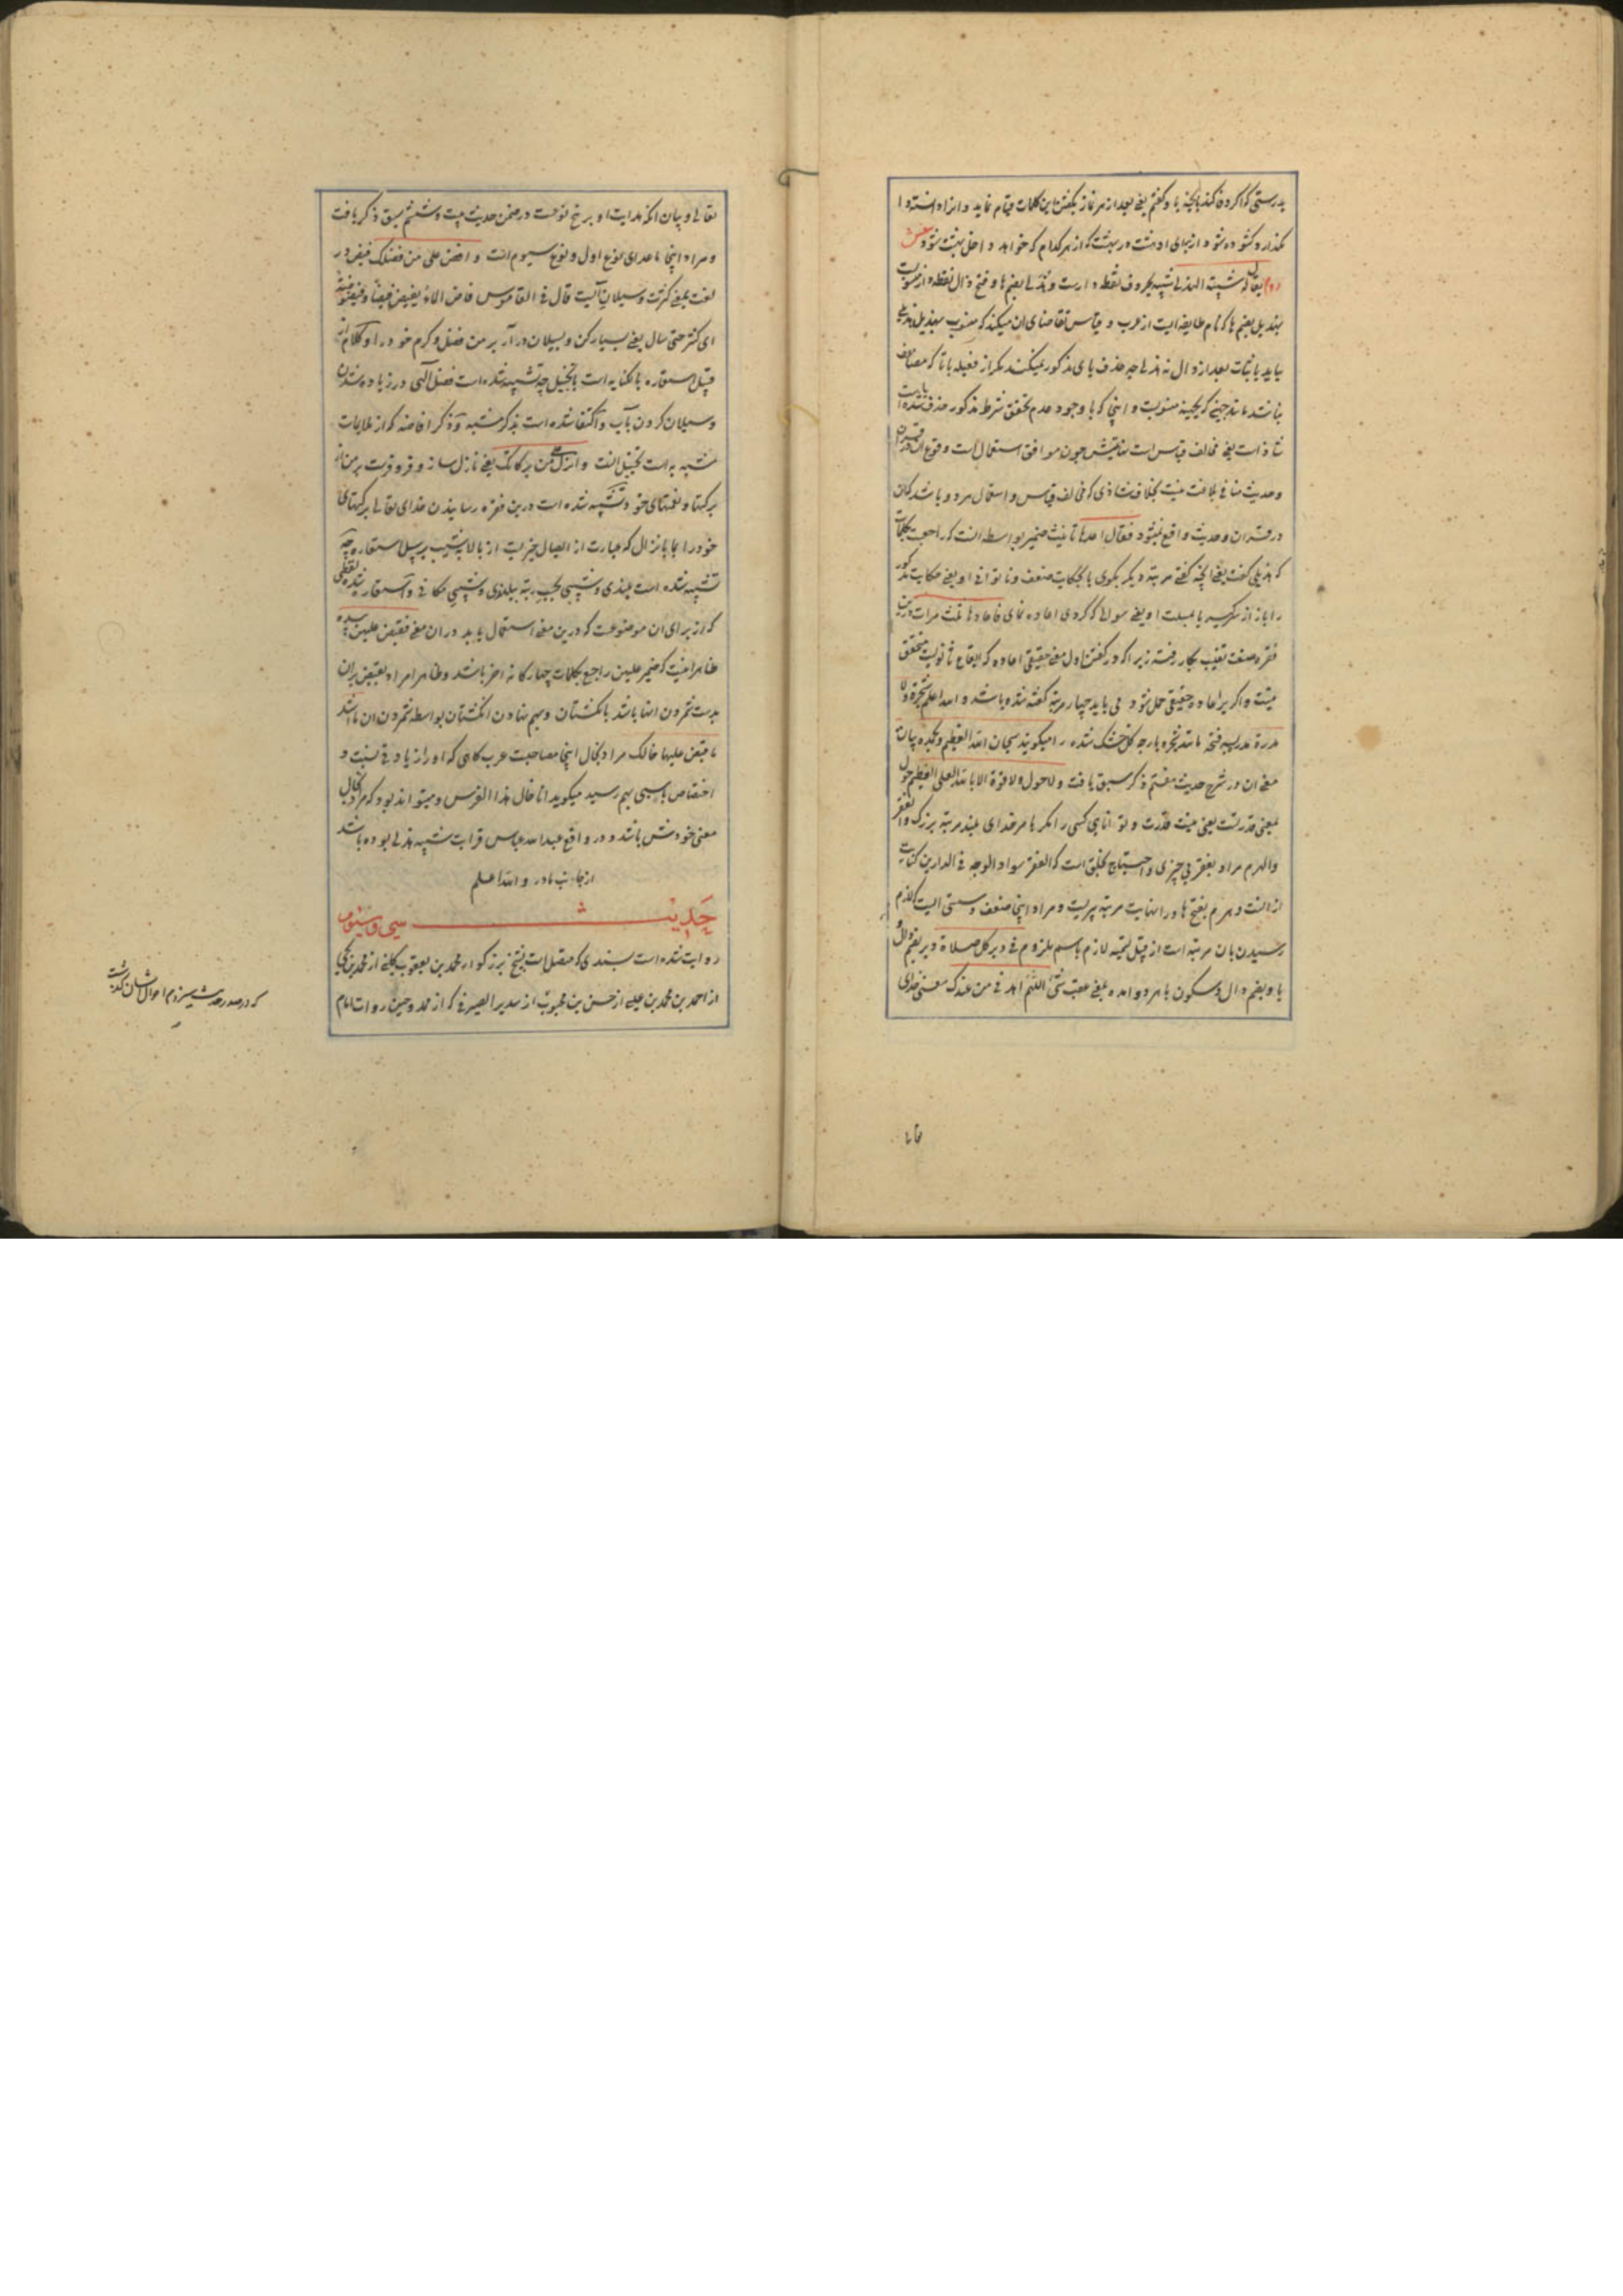 بدرستی که اگر وفا کند بانچه با و گفتم یعنی بعد از هر نماز بگفتن این کلمات قیام نماید و انرا دانسته وا
نگذارد گشوده شود از برای او هشت در بهشت که از هر کدام که خواهد داخل بهشت شود
یقال له شیبة الهذلی شیبه بحروف نقطه دارست و هذلی بضم ها و فتح ذال نقطه دار منسوب
بهذیل بضم ها که نام طایفه ایست از عرب و قیاس تقاضای ان میکند که منسوب بهذیل هذیلی
بیاید باثبات یا بعد از ذال نه هذلی چه حذف یای مذکور نمیکنند مگر از فعیله با تا که مضاعف
نباشد مانند جهنی که بجهینه منسوبست و اینجا که با وجود عدم تحقق شرط مذکور حذف شده است
شاذ است یعنی مخالف قیاس است نهایتش چون موافق استعمال است وقوع ان در قرآن
و حدیث منافی بلاغت نیست بخلاف شاذی که مخالف قیاس و استعمال هر دو باشد که ان
در قرآن و حدیث واقع نمیشود فقال اعدها تانیث ضمیر بواسطه انست که راجعست بکلمات
که هذلی گفت یعنی انچه گفتی مرتبه دیگر بگوی یا بحکایت ضعف و ناتوانی او یعنی حکایت مذکور
را باز از سر گیر یا بمسئلت او یعنی سوالها که کردی اعاده نمای فاعادها ثلث مرات درین
فقره صنعت تغلیب بکار رفته زیرا که در گفتن اول معنی حقیقی اعاده که ایقاع ثانویست متحقق
نیست و اگر بر اعاده حقیقی حمل شود می باید چهار مرتبه گفته شده باشد و الله اعلم شجرة ولا
مدرة مدر بسه فتحه مانند شجره پارچه گل خشک شده را میگویند سبحان الله العظیم و بحمده بیان
معنی ان در شرح حدیث هفتم ذکر سبق یافت ولا حول ولا قوة الا بالله العلی العظیم حول
بمعنی قدرتست یعنی نیست قدرت و توانایی کسی را مگر بامر خدای بلند مرتبه بزرگ والفقر
والهرم مراد بفقر بی چیزی و احتیاج بخلق است که الفقر سواد الوجه فی الدارین کنایت
از انست و هرم بفتح ها و را نهایت مرتبه پیریست و مراد اینجا ضعف و سستی ایست که لازم
رسیدن بان مرتبه است از قبیل تسمیه لازم باسم ملزوم فی دبر کل صلاة دبر بضم دال و
با و بضم دال و سکون با هر دو امده بمعنی عقب شی اللهم اهدنی من عندک معنی هدای
تعالی و بیان انکه هدایت او بر پنج نوعست در ضمن حدیث بیست و ششم سبق ذکر یافت
و مراد اینجا ماعدای نوع اول و نوع سیوم انست و افض علی من فضلک فیض در
لغت بمعنی کثرت و سیلان آبست قال فی القاموس فاض الماء یفیض فیضا و فیضوضة
ای کثر حتی سال یعنی بسیار کن و بسیلان درآر بر من فضل و کرم خود را و کلام از
قبیل استعاره بالکنایه است باتخییل چه تشبیه شده است فضل الهی در زیاده شدن
و سیلان کردن بآب و اکتفا شده است بذکر مشبه و ذکر افاضه که از ملایمات
مشبه به است تخییل انست و انزل علی من برکاتک یعنی نازل ساز و فرو فرست بر من از
برکتها و نعمتهای خود و تشبیه شده است درین فقره رسانیدن خدای تعالی برکتهای
خود را بما بانزال که عبارت از ایصال چیزیست از بالا بشیب بر سبیل استعاره چه
تشبیه شده است بلندی و پستی بحسب رتبه ببلندی و پستی مکانی و استعاره شده لفظی
که از برای ان موضوعست که درین معنی استعمال یابد در ان معنی فقبض علیهن بیده
ظاهر اینست که ضمیر علیهن راجع بکلمات چهارگانه اخر باشد و ظاهرا مراد بقبض بر ان
بدست شمردن انها باشد بانگشتان و بهم نهادن انگشتان بواسطه شمردن ان باشد
ما قبض علیها خالک مراد بخال اینجا مصاحبست عرب کاسی که او را زیادتی نسبت و
اختصاص باسبی بهم رسید میگوید انا خال هذا الفرس و میتواند بود که مراد بخال
معنی خودش باشد و در واقع عبدالله عباس قرابت شیبه هذلی بوده باشد
از جانب مادر و الله اعلم
حدیث سی و سیوم
روایت شده است بسندی که متصل است بشیخ بزرگوار محمد بن یعقوب کلینی از محمد بن یحیی
از احمد بن محمد بن عیسی از حسن بن محبوب از سدیر الصیرفی که از ممدوحین روات امام
که در صدر حدیث سیزدهم احوال ایشان گذشت